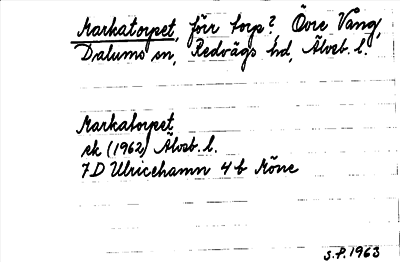 Markatorpet, förr torp?, Övre Vång,
Dalums sn, Redvägs hd, Älvsb. l.
Markatorpet
ek (1962) Älvsb. l.
7D Ulricehamn 4 b Möne
S.P. 1963